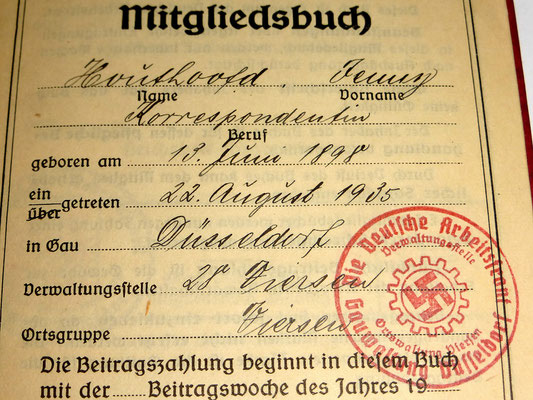 Mitgliedsbuch
Houthoofd Jenny
Name Vorname
Korrespondentin
Beruf
geboren am 13. Juni 1898
ein
über getreten 22. August 1935
in Gau Düsseldorf
Verwaltungsstelle 28 Viersen
Ortsgruppe Viersen
Die Deutsche Arbeitsfront
Gauwaltung Düsseldorf
Verwaltungsstelle
Ortswaltung Viersen
Die Beitragszahlung beginnt in diesem Buch
mit der ...... Beitragswoche des Jahres 19